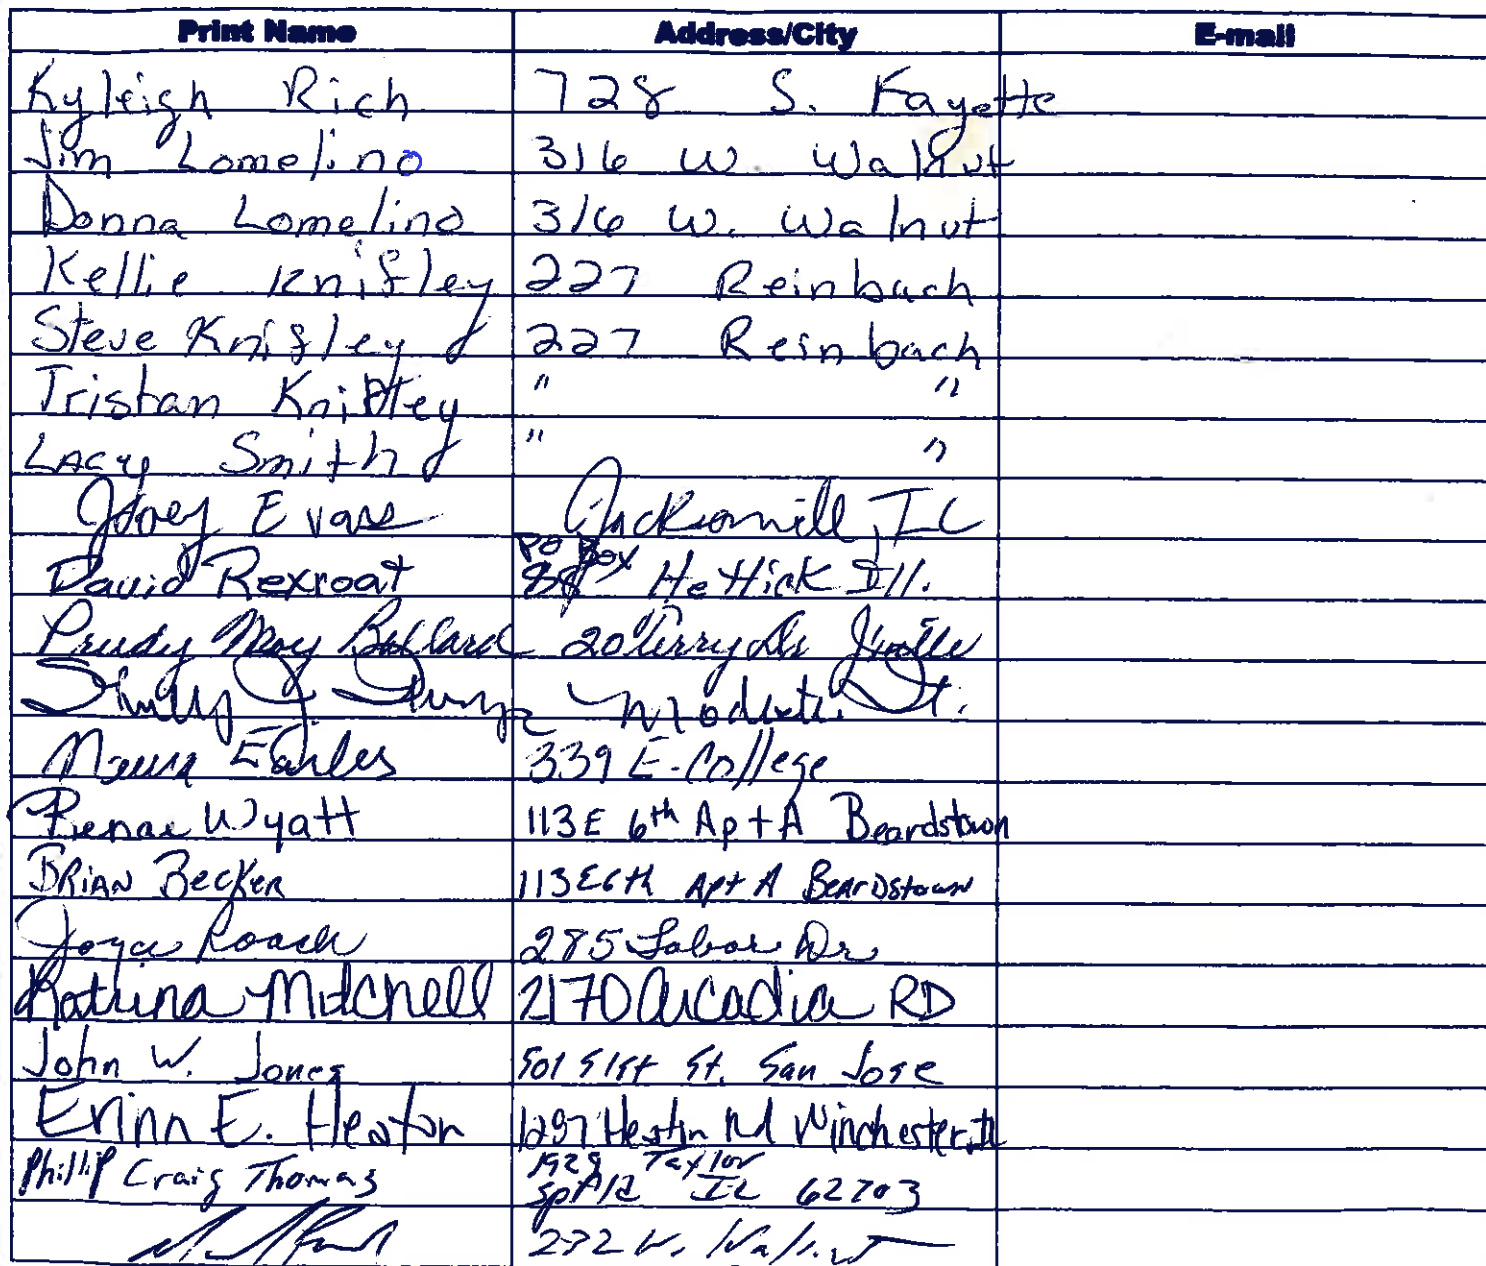 Print Name Address/City E-mail
Kyleigh Rich 728 S. Fayette
Jim Lomelino 316 W. Walnut
Donna Lomelino 316 W. Walnut
Kellie Knifley 227 Reinbach
Steve Knifley 227 Reinbach
Tristan Knifley " "
LACY Smith " "
Joey Evans Jacksonville, IL
PO Box
David Rexroat 88 Hettick Ill.
Prudy May Ballard 20 Perry Dr Jville
J. Modesto. St.
Earles 339 E. College
Renae Wyatt 113 E 6th Apt A Beardstown
BRIAN BECKER 113 E 6th Apt A BEARDStown
Joya Roach 285 Dr.
Katrina Mitchell 2170 Arcadia RD
John W. Jones 501 S 1st St. San Jose
Erinn E. Heaton 1297 Hestin Rd Winchester, IL
1929 Taylor
Phillip Craig Thomas Spfld IL 62703
232 W. Walnut